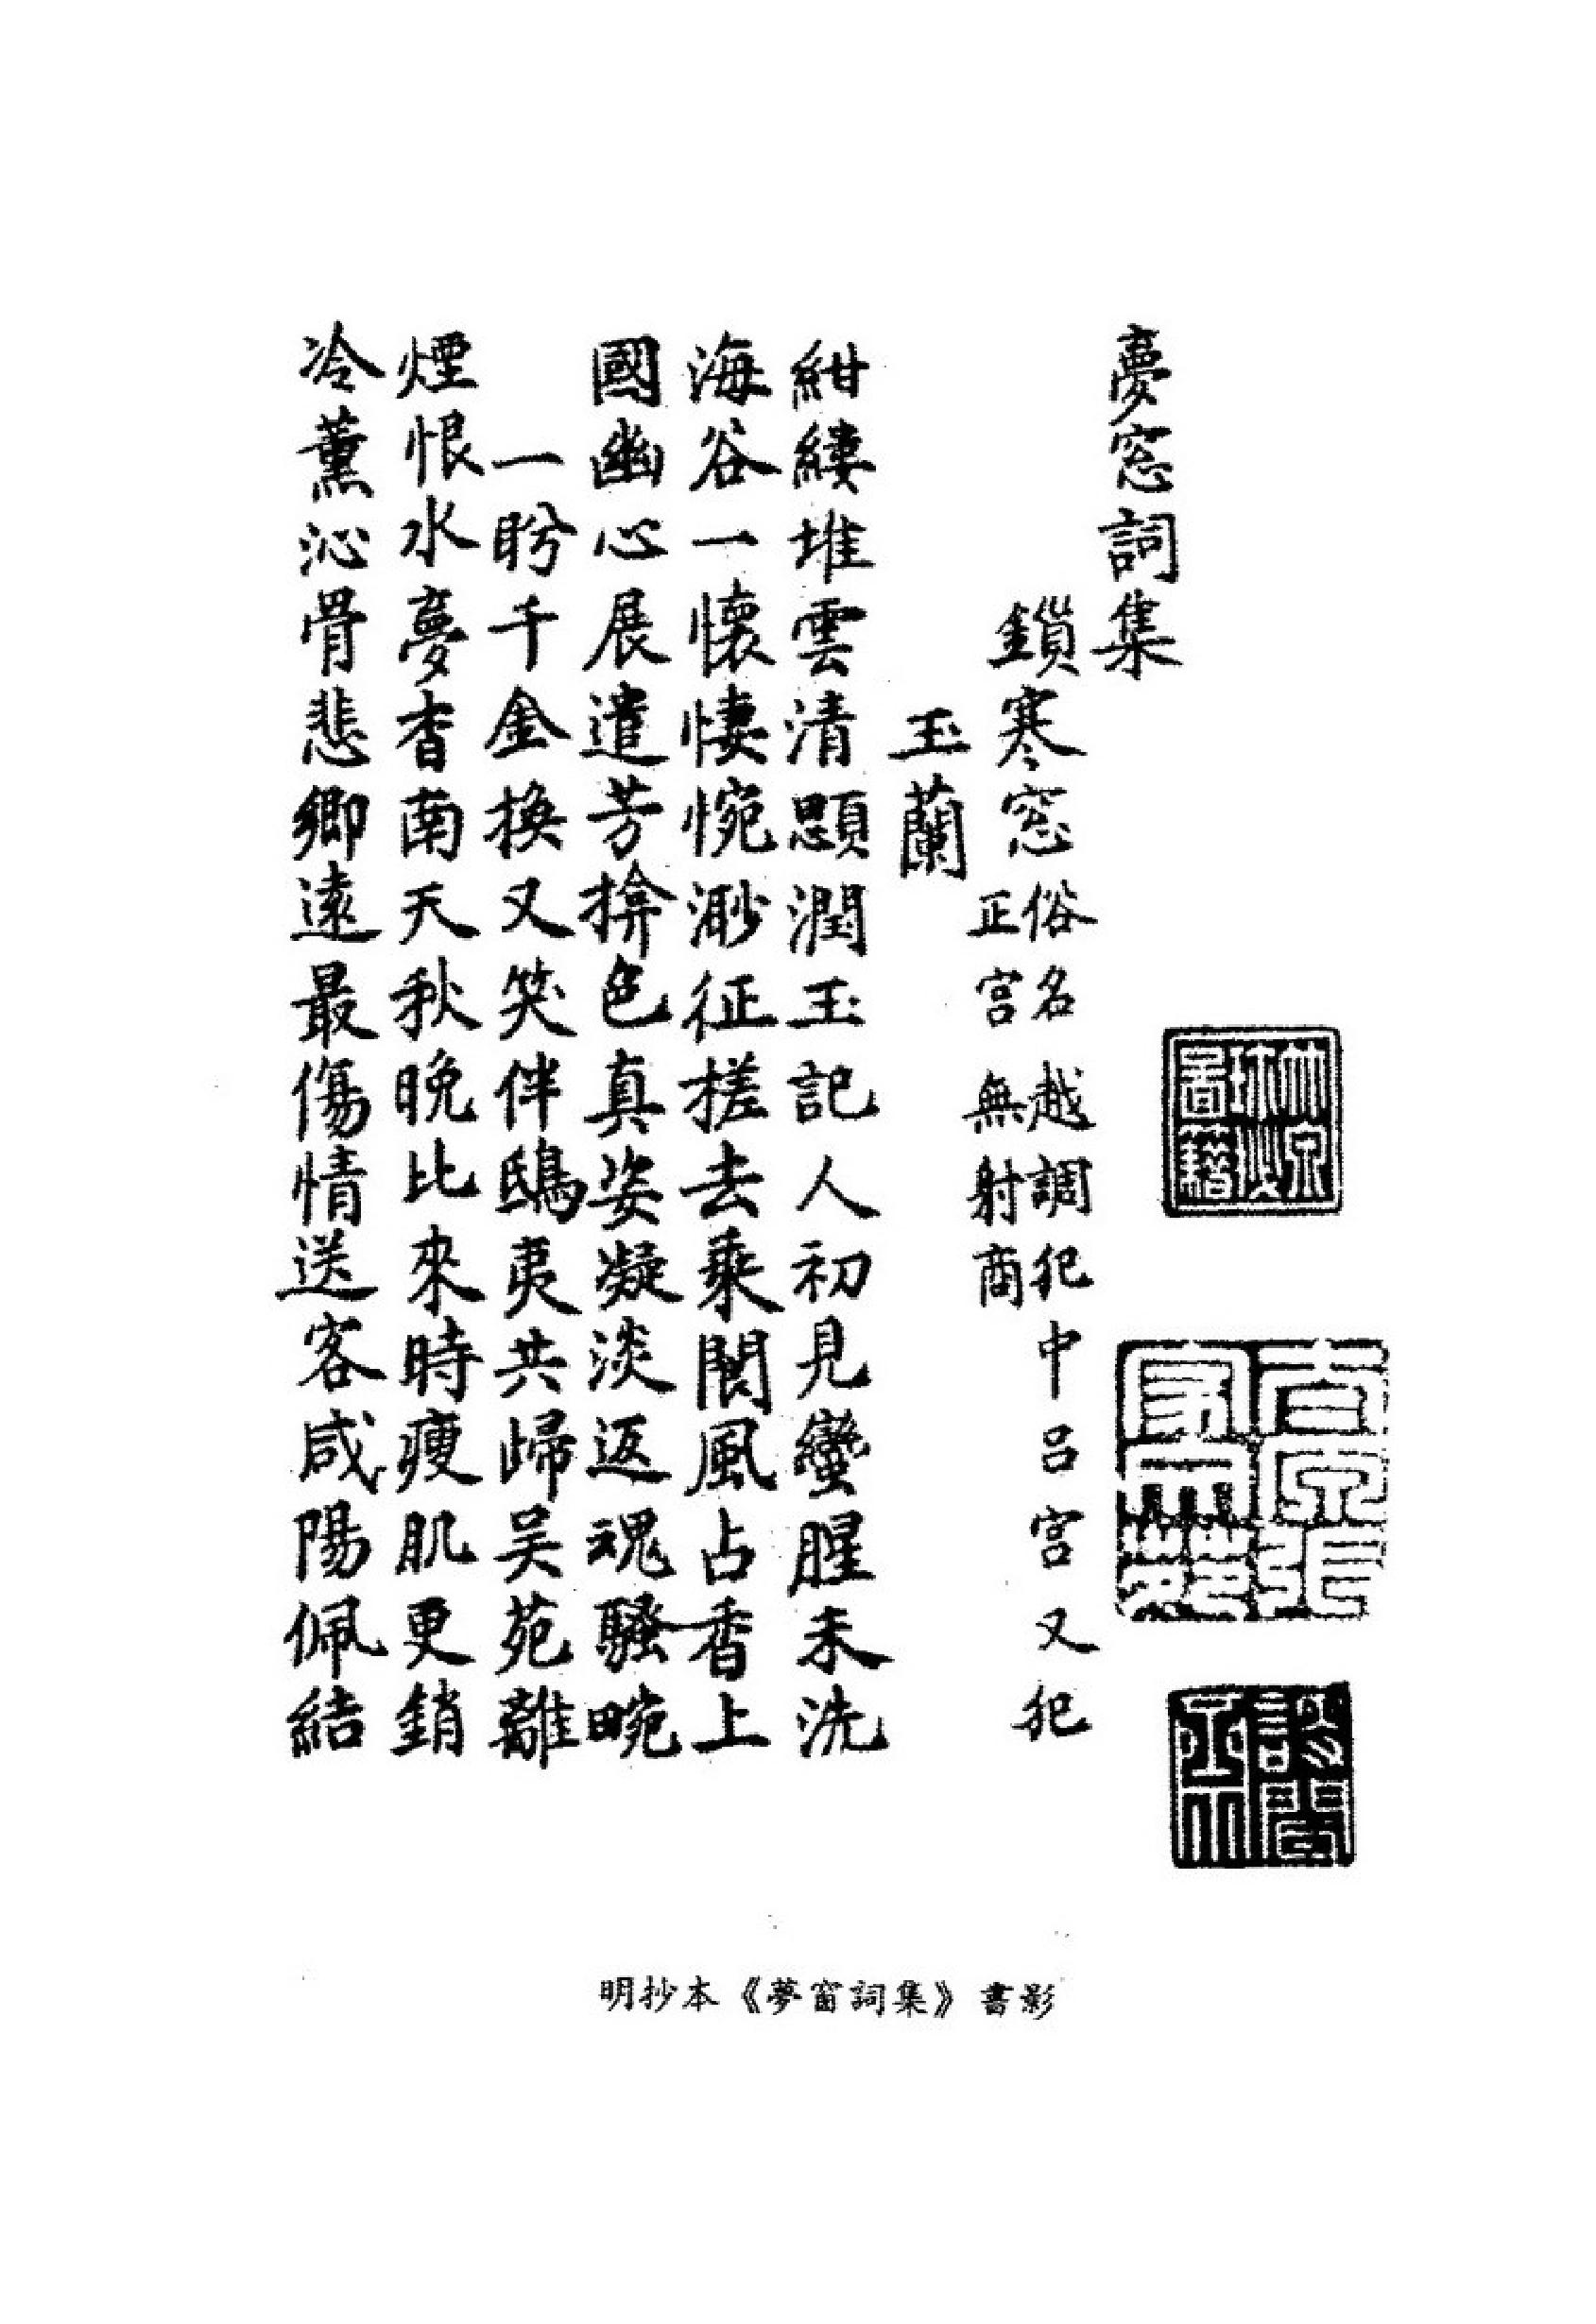 夢窓詞集
鎖寒窓俗名越調犯中吕宫又犯
正宫無射商
玉蘭
紺縷堆雲清顋潤玉記人初見蠻腥未洗
海谷一懷悽惋渺征槎去乘閬風占香上
國幽心展遺芳揜色真姿凝淡返魂騷畹
一盻千金換又笑伴鴟夷共歸吴苑離
煙恨水夢杳南天秋晚比來時瘦肌更銷
冷薰沁骨悲鄉遠最傷情送客咸陽佩結
明抄本《夢窗詞集》書影